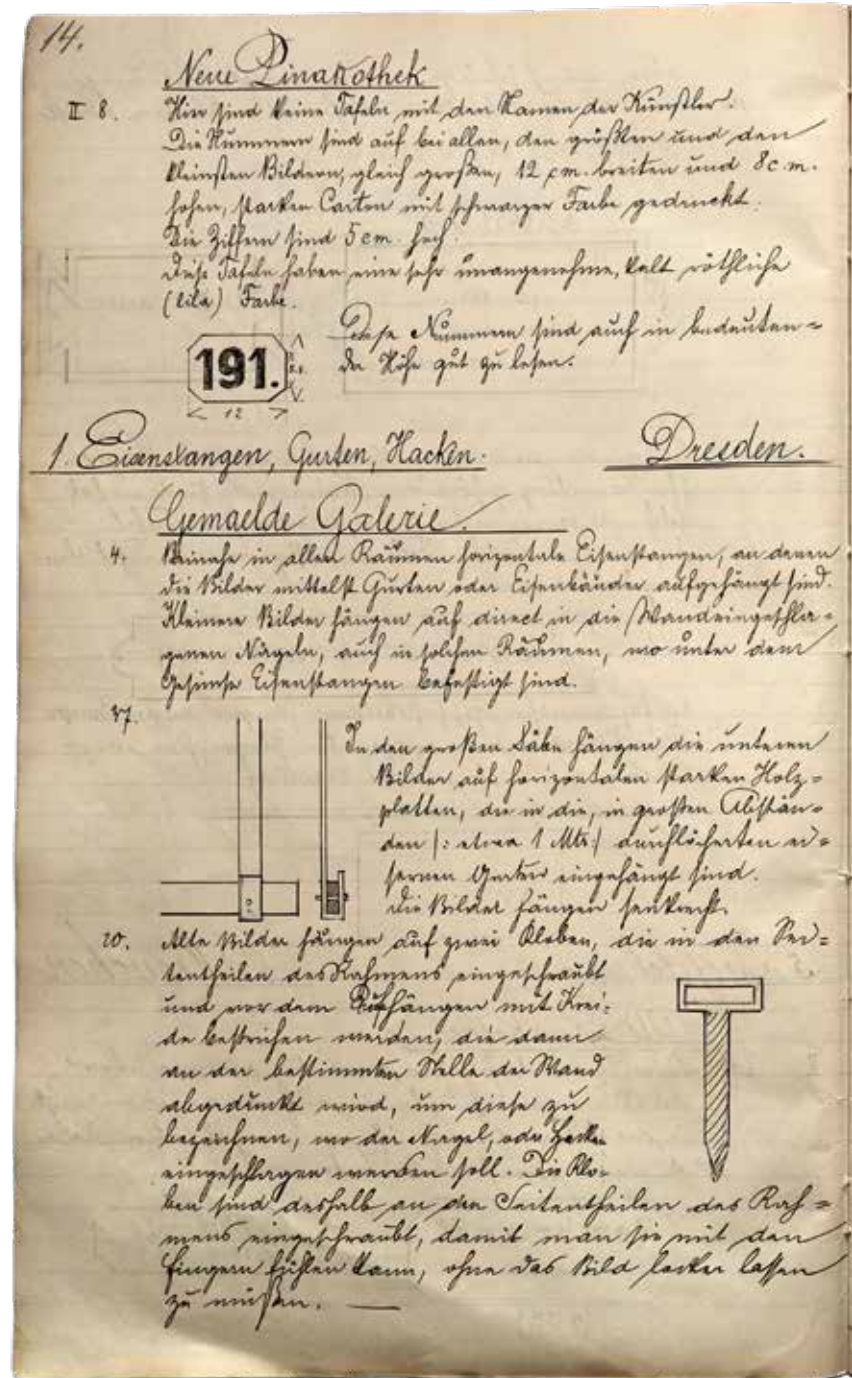 14.
Neue Pinakothek
II 8. Hier sind keine Tafeln mit den Namen der Künstler.
Die Nummern sind auf bei allen, den größten und den
kleinsten Bildern, gleich großen, 12 cm. breiten und 8 c.m.
hohen, starken Carton mit schwarzer Farbe gedruckt.
Die Ziffern sind 5 cm. hoch.
Diese Tafeln haben eine sehr unangenehme, kalt röthliche
(lila) Farbe.
Diese Nummern sind auch in bedeuten=
der Höhe gut zu lesen.
191.
12
1. Eisenstangen, Gurten, Hacken. Dresden.
Gemaelde Galerie.
4. Beinahe in allen Räumen horizontale Eisenstangen, an denen
die Bilder mittelst Gurten oder Eisenbänder aufgehängt sind.
Kleinere Bilder hängen auf direct in die Wand eingeschla=
genen Nägeln, auch in solchen Räumen, wo unter dem
Gesimse Eisenstangen befestigt sind.
37. In den großen Säle hängen die unteren
Bilder auf horizontalen starken Holz=
platten, die in die, in großen Abstän=
den |: etwa 1 Mtr :| durchlöcherten ei=
sernen Gurten eingehängt sind.
Die Bilder hängen senkrecht.
20. Alte Bilder hängen auf zwei Kloben, die in den Sei=
tentheilen des Rahmens eingeschraubt
und vor dem Aufhängen mit Krei=
de bestrichen werden, die dann
an der bestimmten Stelle der Wand
abgedruckt wird, um diese zu
bezeichnen, wo der Nagel, oder Hacken
eingeschlagen werden soll. Die Klo=
ben sind deshalb an den Seitentheilen des Rah=
mens eingeschraubt, damit man sie mit den
Fingern fühlen kann, ohne das Bild locker lassen
zu müßen. —